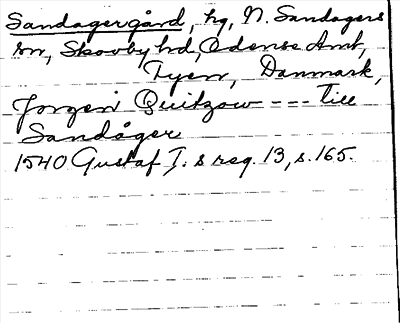 Sandagergård, hg, N. Sandagers
sn, Skovby hd, Odense Amt,
Fyen, Danmark,
Jörgen Quitzow --- till
Sandåger
1540 Gustaf I:s reg. 13, s. 165.